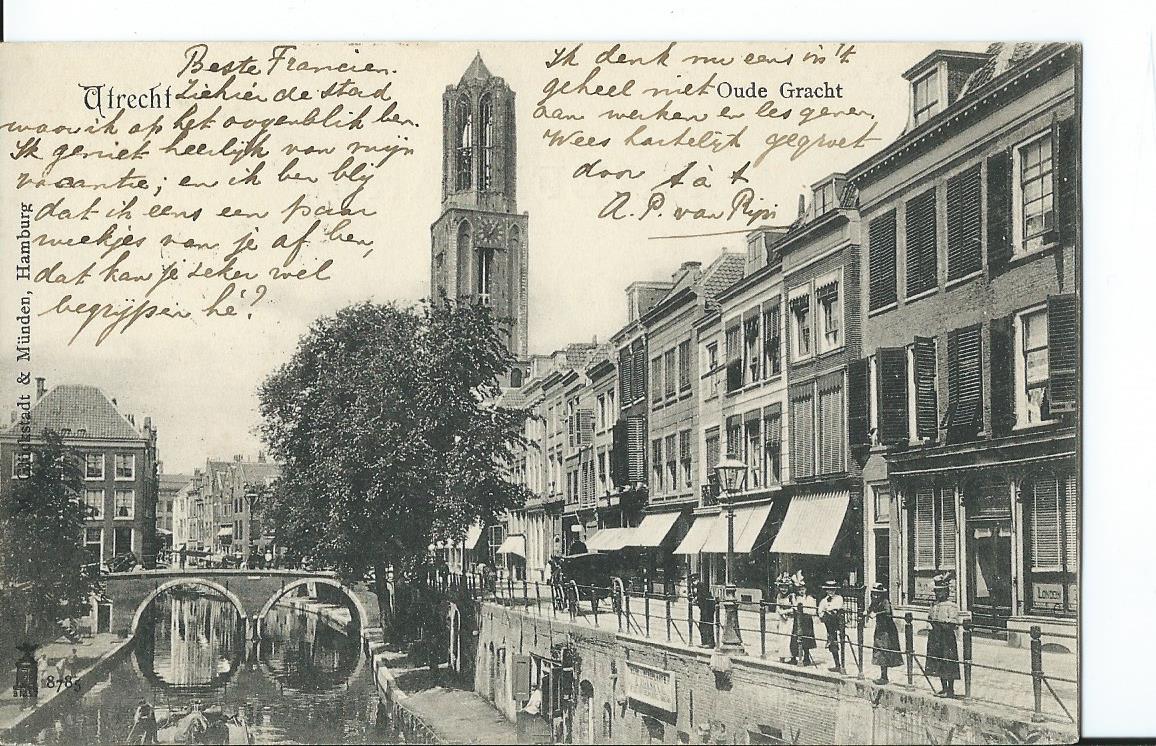 Utrecht
Beste Francien.
Ziehier de stad
waar ik op het oogenblik ben.
Ik geniet heerlijk van mijn
vacantie; en ik ben blij
dat ik eens een paar
weekjes van je af ben,
dat kan je zeker wel
begrijpen hè?
Ik denk nu eens in 't
geheel niet
aan werken en les geven.
Wees hartelijk gegroet
door t à t
A. P. van Rijn
Oude Gracht
Glückstadt & Münden, Hamburg
8785
LONDON